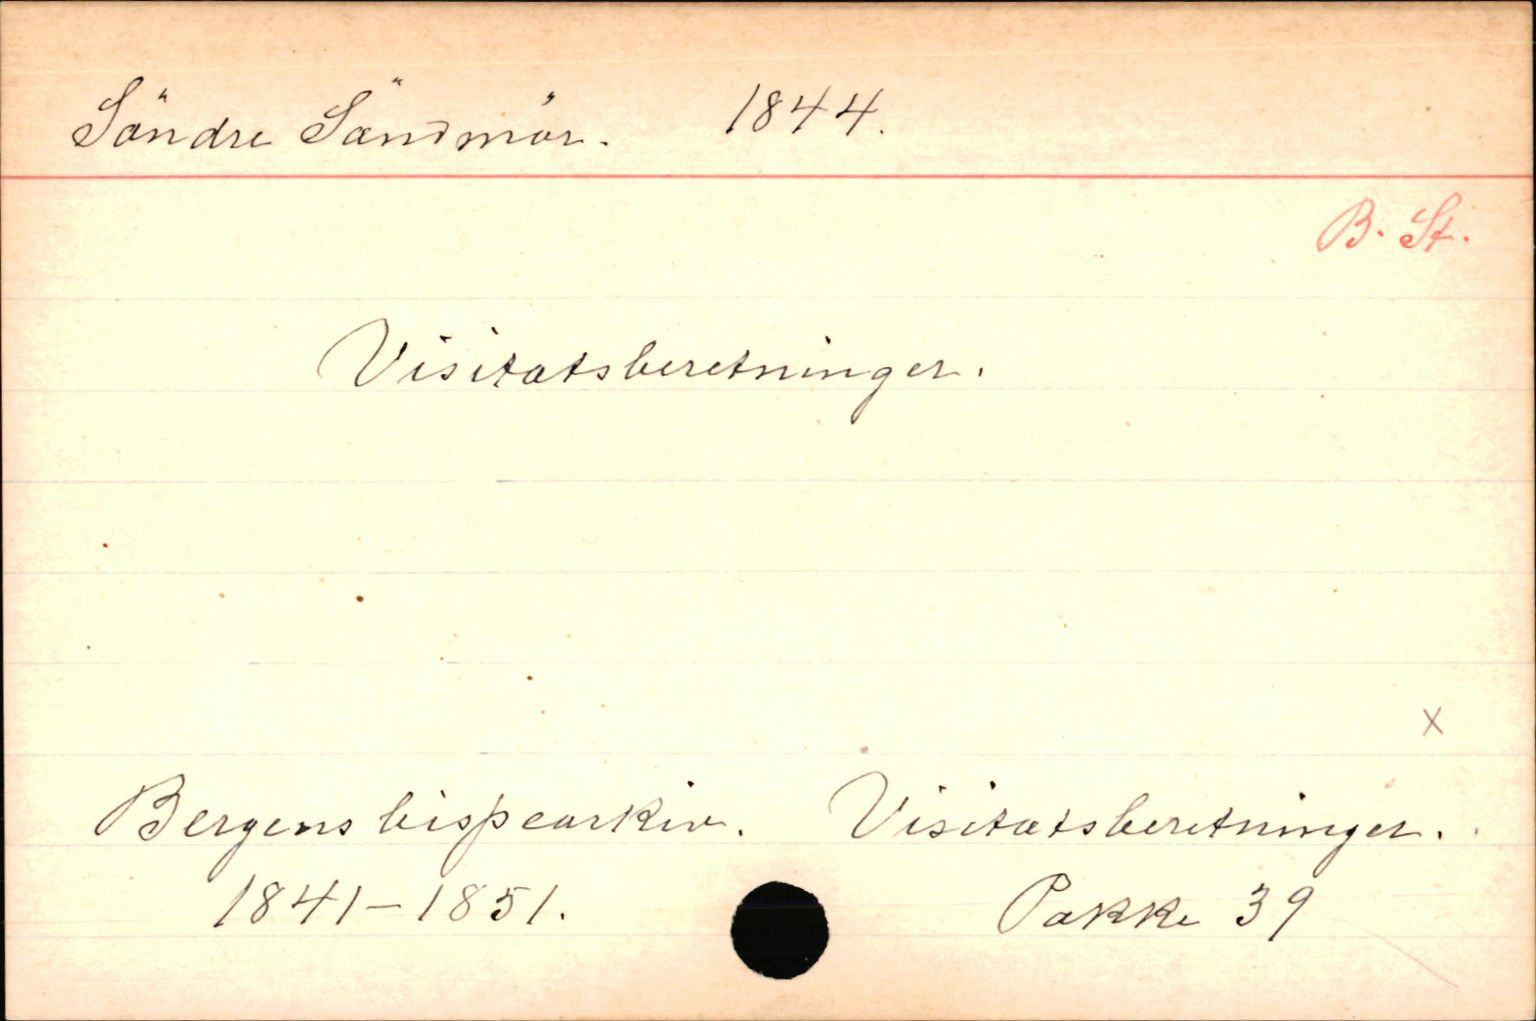 Söndre Söndmör. 1844.
B. St.
Visitatsberetninger.
x
Bergens bispearkiv. Visitatsberetninger.
1841-1851. Pakke 39